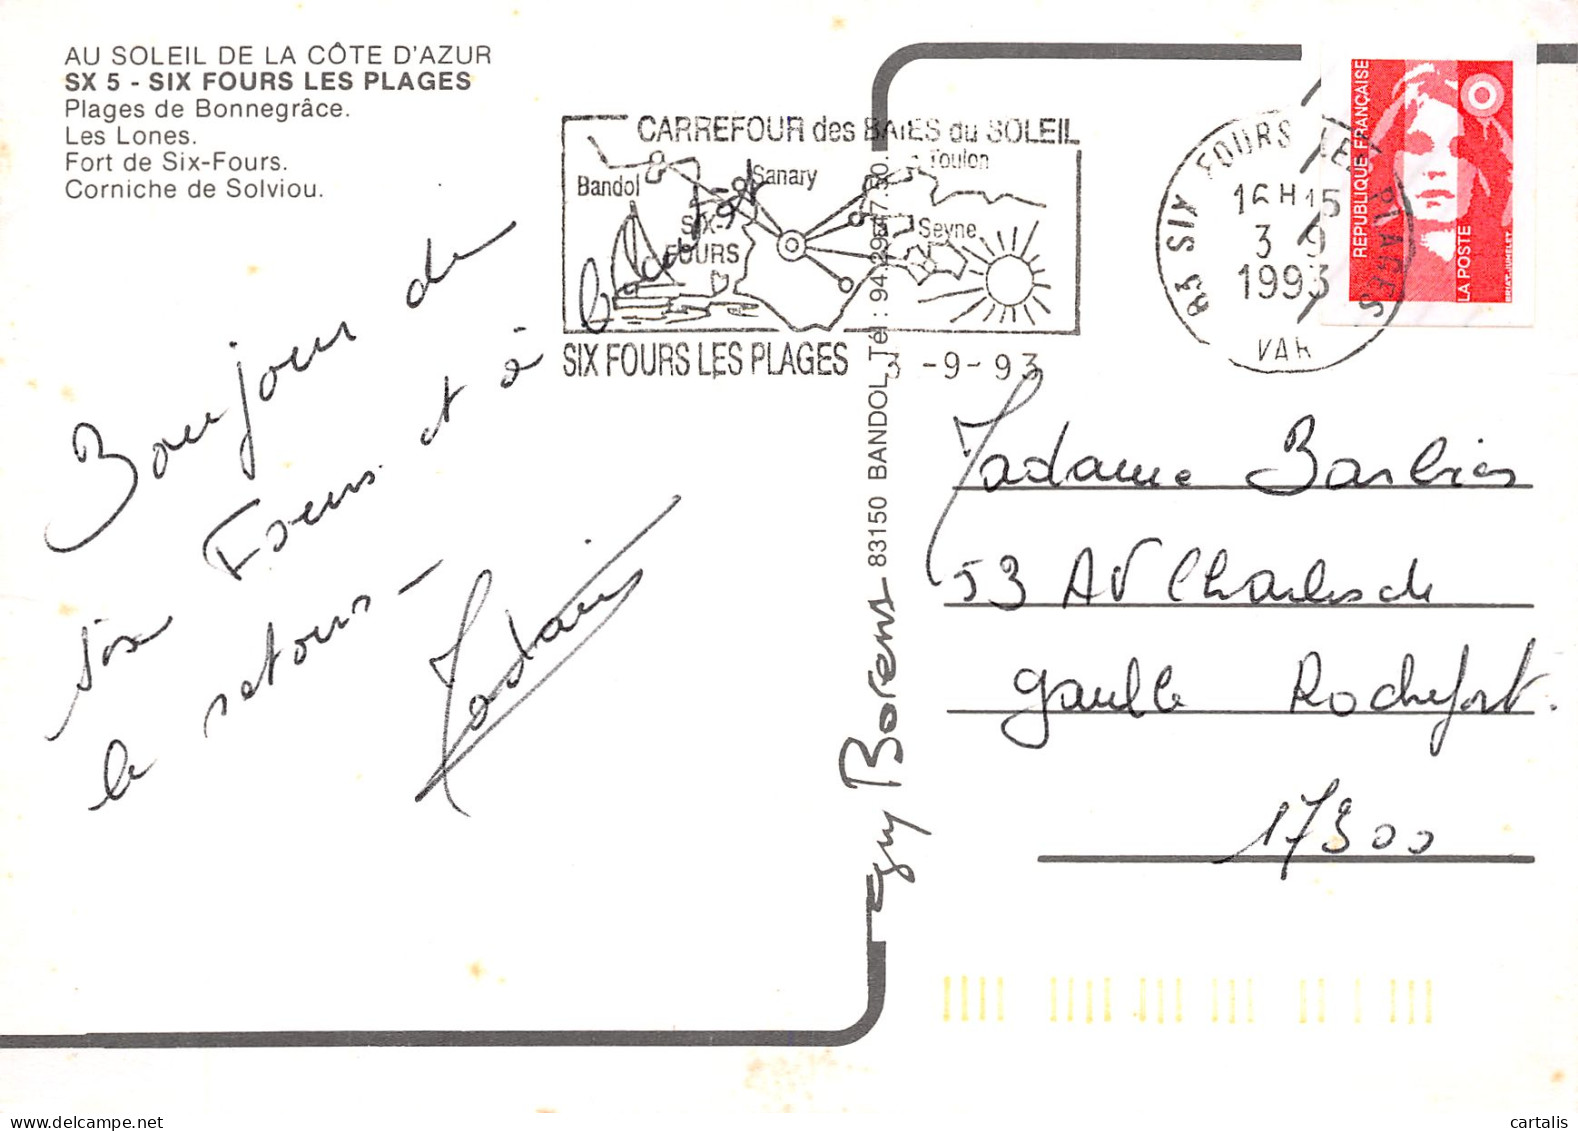 AU SOLEIL DE LA CÔTE D'AZUR
SX 5 - SIX FOURS LES PLAGES
Plages de Bonnegrâce.
Les Lones.
Fort de Six-Fours.
Corniche de Solviou.
Bonjour de
six Fours et à
le retour -
CARREFOUR des BAIES du SOLEIL
Bandol
Sanary
Toulon
SIX-
FOURS
Seyne
SIX FOURS LES PLAGES 3 -9-93
83 SIX FOURS LES PLAGES
16H15
3 9
1993
VAR
REPUBLIQUE FRANÇAISE
LA POSTE
BRIAT-JUMELET
83150 BANDOL Tél : 94.29.
Madame Barbier
53 AV Charles de
Gaulle Rochefort.
17300
cartalis